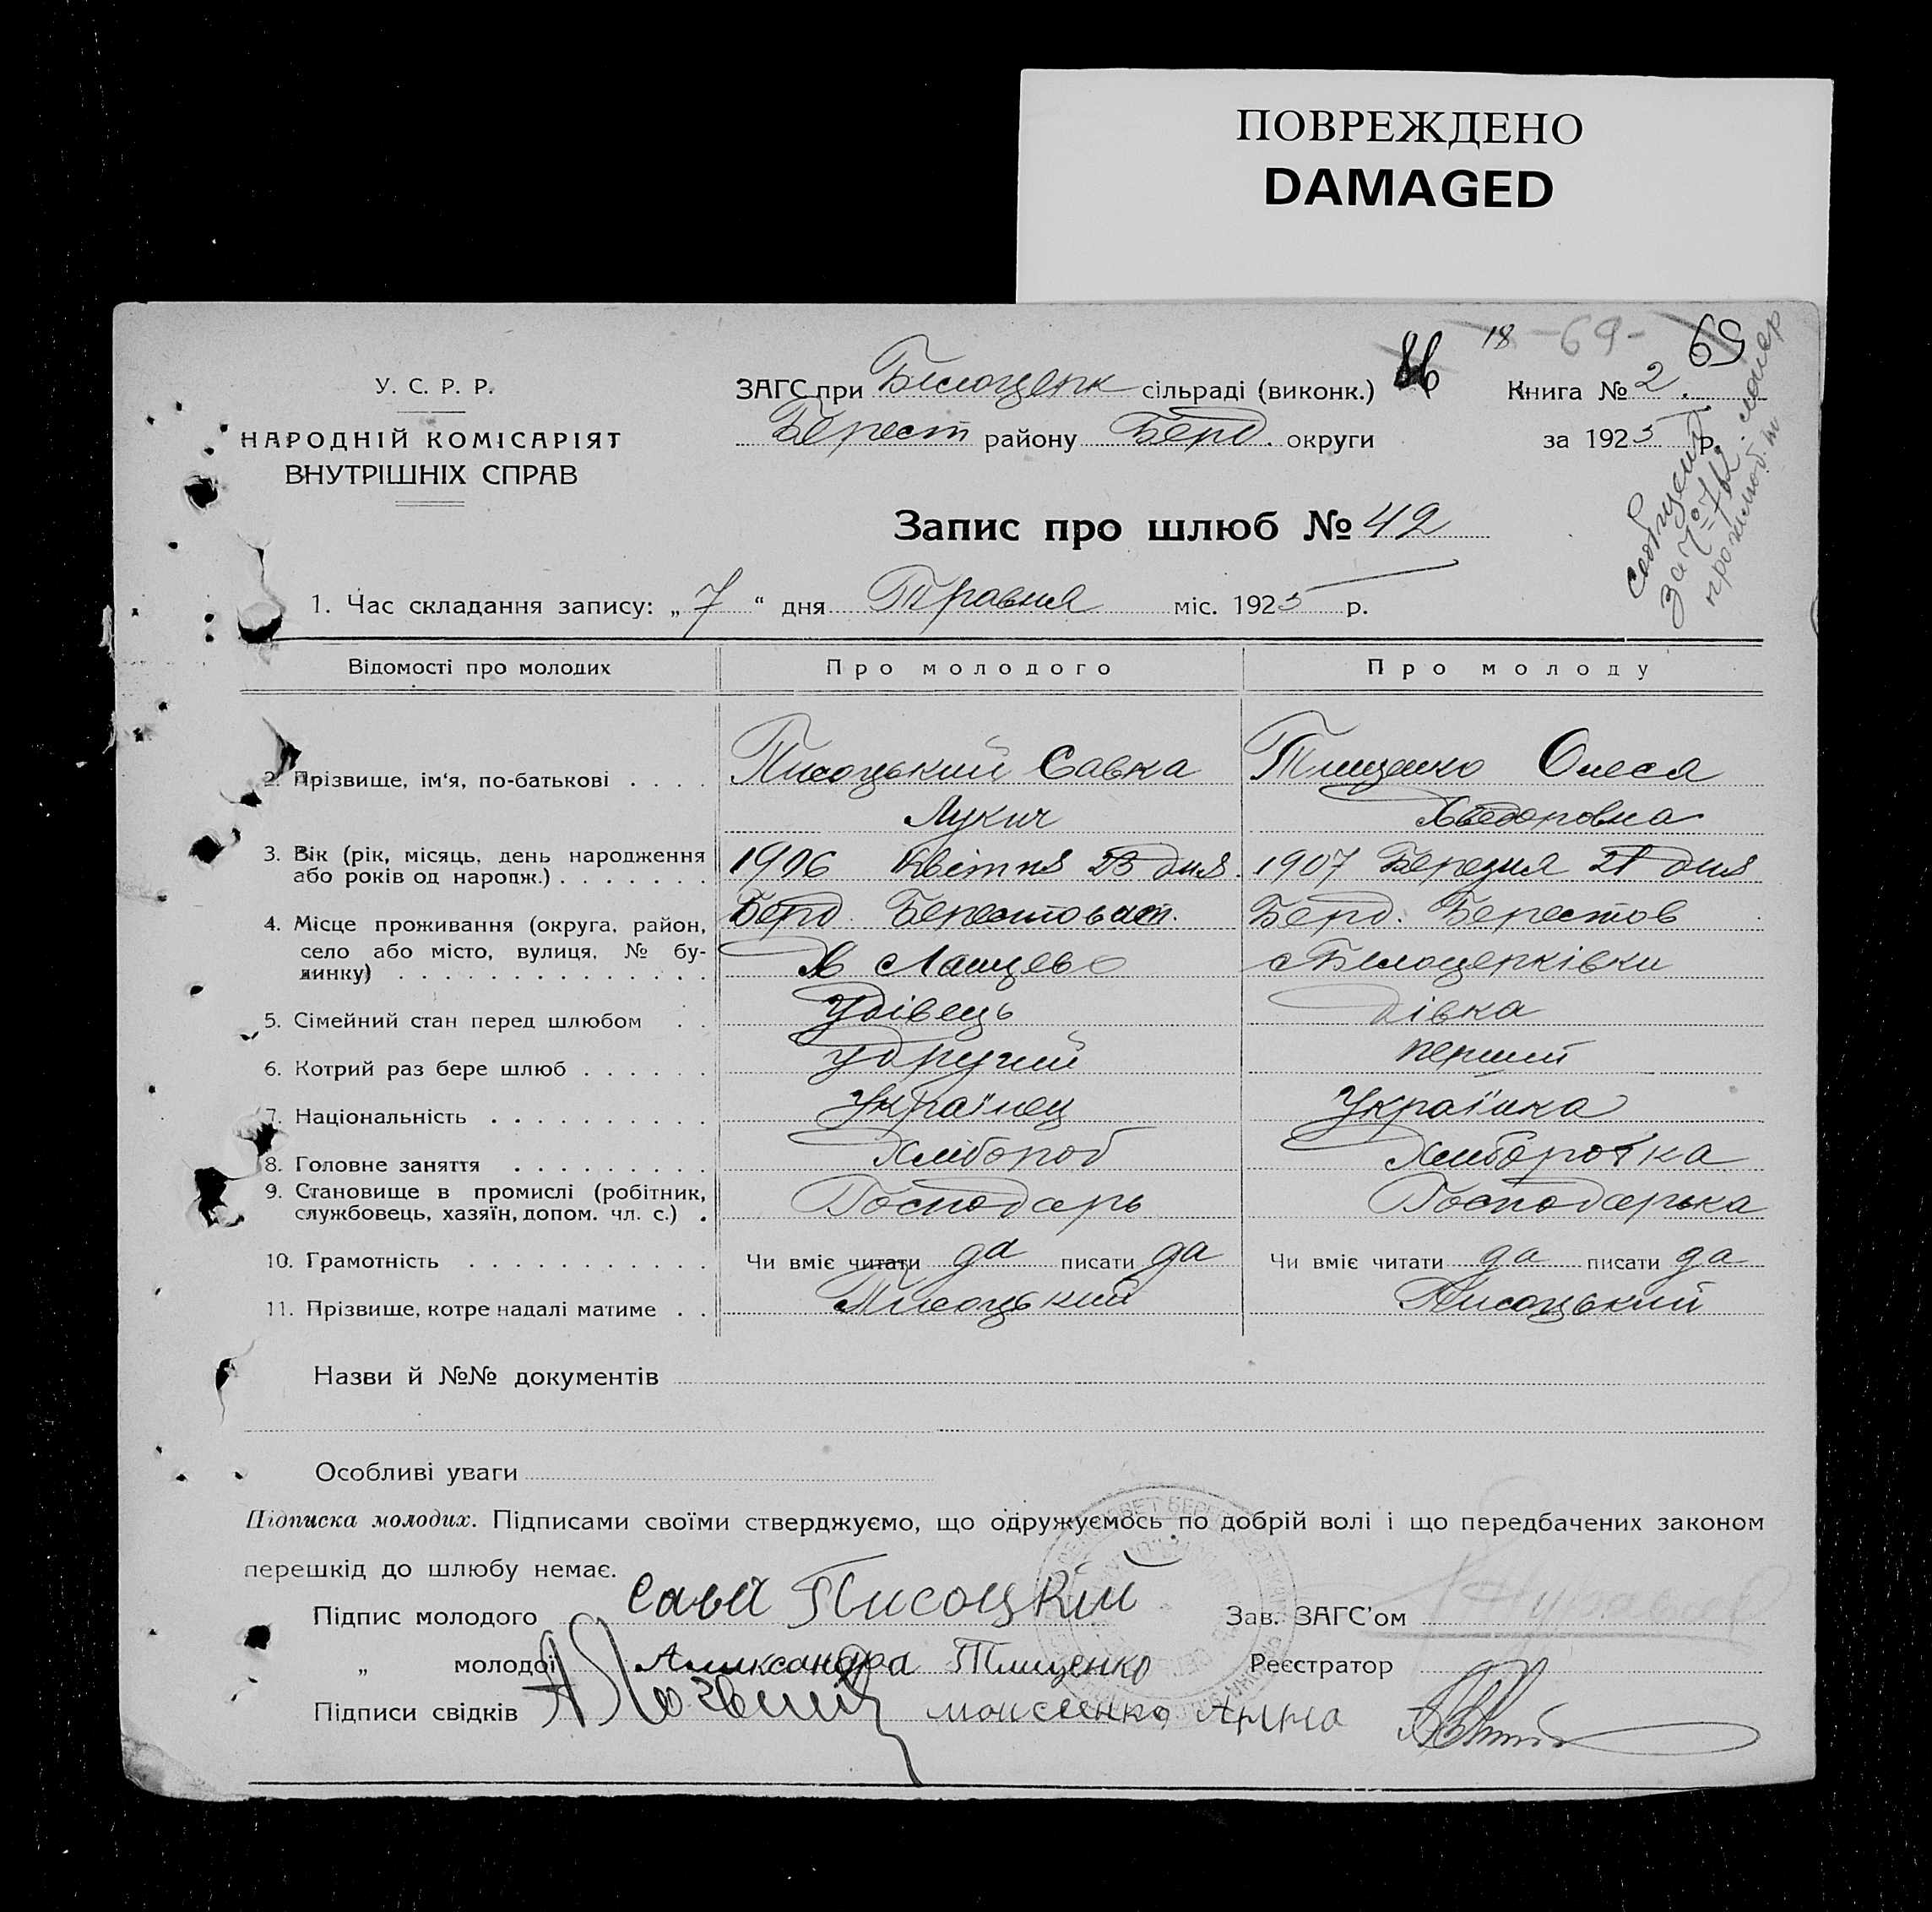 ПОВРЕЖДЕНО
DAMAGED
18 -69- 69
У. С. Р. Р.
НАРОДНІЙ КОМІСАРІЯТ
ВНУТРІШНІХ СПРАВ
ЗАГС при Білоцерк сільраді (виконк.)
Берест району Берд. округи
Книга № 2.
за 1925 р.
Запис про шлюб № 42
1. Час складання запису: „7“ дня Травня міс. 1925 р.
Відомості про молодих Про молодого Про молоду
2. Прізвище, ім‘я, по-батькові . . . . Писоцький Савка Тищенко Олеся
Лукич Хведоровна
3. Вік (рік, місяць, день народження
або років од народж.) . . . . . . . 1906 Квітня 23 дня. 1907 Березня 21 дня
4. Місце проживання (округа, район, Берд. Берестоват. Берд. Берестов
село або місто, вулиця, № бу-
динку) . . . . . . . . . . . . . . Х Ланцево с Білоцерківки
5. Сімейний стан перед шлюбом . . Удівець дівка
6. Котрий раз бере шлюб . . . . . . удругий перший
7. Національність . . . . . . . . . . Українец Українка
8. Головне заняття . . . . . . . . . Хлібороб Хлиборобка
9. Становище в промислі (робітник,
службовець, хазяїн, допом. чл. с.) . Господарь Господарька
10. Грамотність . . . . . . . . . . . Чи вміє читати да писати да Чи вміє читати да писати да
11. Прізвище, котре надалі матиме . . Писоцький Писоцький
Назви й №№ документів
Особливі уваги
Підписка молодих. Підписами своїми стверджуємо, що одружуємось по добрій волі і що передбачених законом
перешкід до шлюбу немає.
Підпис молодого Сава Писоцкій Зав. ЗАГС’ом
„ молодої Аликсандра Тищенко Реєстратор
Підписи свідків Моисеенко Анна